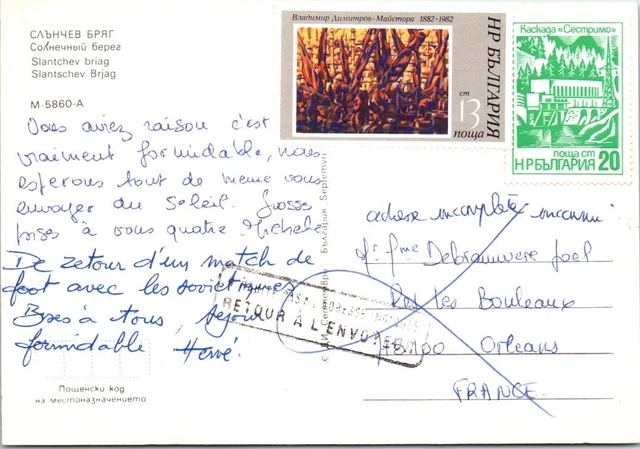 СЛЪНЧЕВ БРЯГ
Солнечный берег
Slantchev briag
Slantschev Brjag
М-5860-А
Владимир Димитров-Майстора 1882·1982
НР БЪЛГАРИЯ
ст 13 поща
Каскада „Сестримо"
поща ст
НРБЪЛГАРИЯ 20
Vous aviez raison c'est
vraiment formidable, nous
esperons tout de meme vous
envoyer du Soleil. Grosses
bises à vous quatre Michele
De retour d'un match de
foot avec les soviétiques
Bses à tous, séjour
formidable Hervé.
RETOUR À L'ENVOYEUR
adresse incomplète inconnu
Joel
Les Bouleaux
Orleans
FRANCE
Пощенски код
на местоназначението